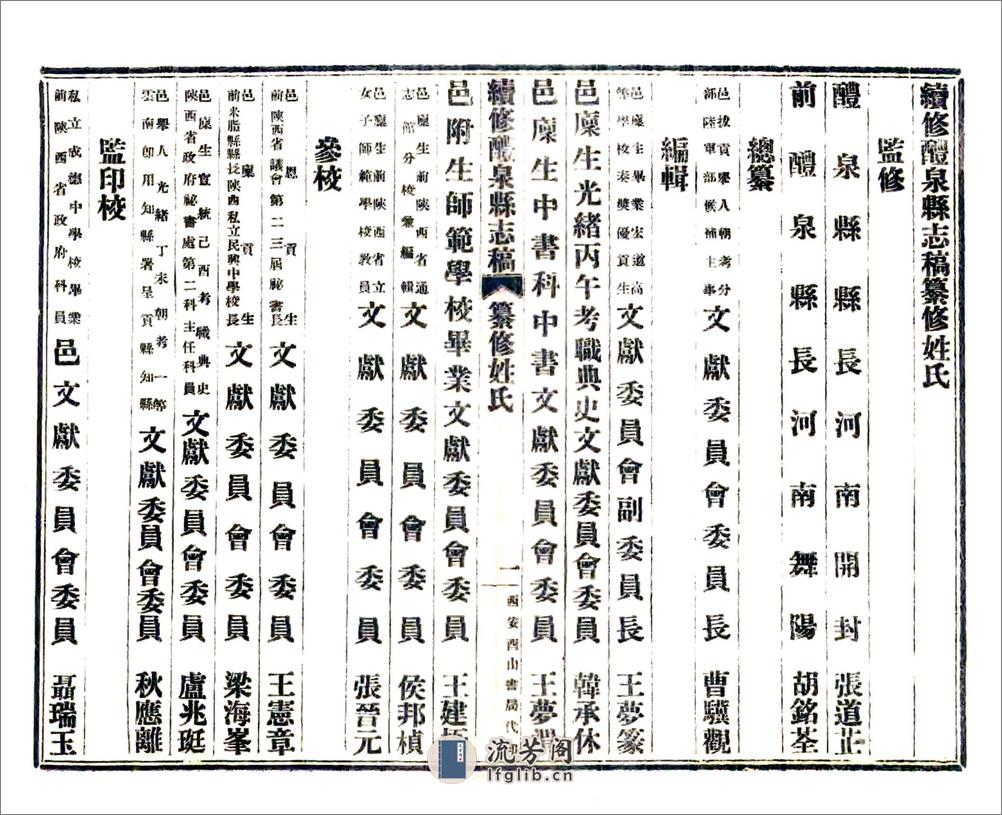 續修醴泉縣志稿纂修姓氏
監修
醴泉縣縣長河南開封張道芷
前醴泉縣長河南舞陽胡銘荃
總纂
邑拔貢舉人朝考分
部陸軍部候補主事
文獻委員會委員長 曹驥觀
編輯
邑廩生畢業宏道高
等學校奏獎優貢生
文獻委員會副委員長 王夢篆
邑廩生光緒丙午考職典史文獻委員會委員 韓承休
邑廩生中書科中書文獻委員會委員 王夢
續修醴泉縣志稿 纂修姓氏
一
西安酉山書局代
邑附生師範學校畢業文獻委員會委員 王建
邑廩生前陝西省通
志館分校兼編輯
文獻委員會委員 侯邦楨
邑廩生前陝西省立
女子師範學校教員
文獻委員會委員 張晉元
參校
邑恩貢生
前陝西省議會第二三屆祕書長
文獻委員會委員 王憲章
邑廩貢生
前米脂縣縣長陝西私立民興中學校長
文獻委員會委員 梁海峯
邑廩生宣統己酉考職典史
陝西省政府祕書處第二科主任科員
文獻委員會委員 盧兆珽
邑舉人光緒丁未朝考一等
雲南即用知縣署呈貢縣知縣
文獻委員會委員 秋應離
監印校
私立成德中學校畢業
前陝西省政府科員
邑文獻委員會委員 聶瑞玉
流芳阁
lfglib.cn